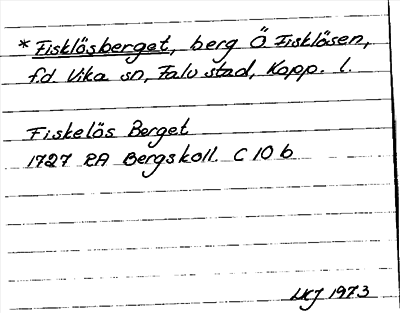 * Fisklösberget, berg Ö Fisklösen,
f.d Vika sn, Falu stad, Kopp. l.
Fiskelös Berget
1727 RA Bergskoll. C 10 b
1973